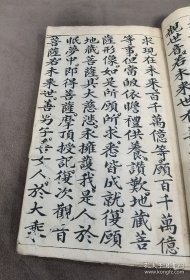 求現在未來百千萬億等願百千萬億
等事但當皈依瞻禮供養讚歎地藏菩
薩形像如是所願所求悉皆成就復願
地藏菩薩具大慈悲永擁護我是人於
眠夢中即得菩薩摩頂授記復次觀音
菩薩若未來世善男子善女人於大乘